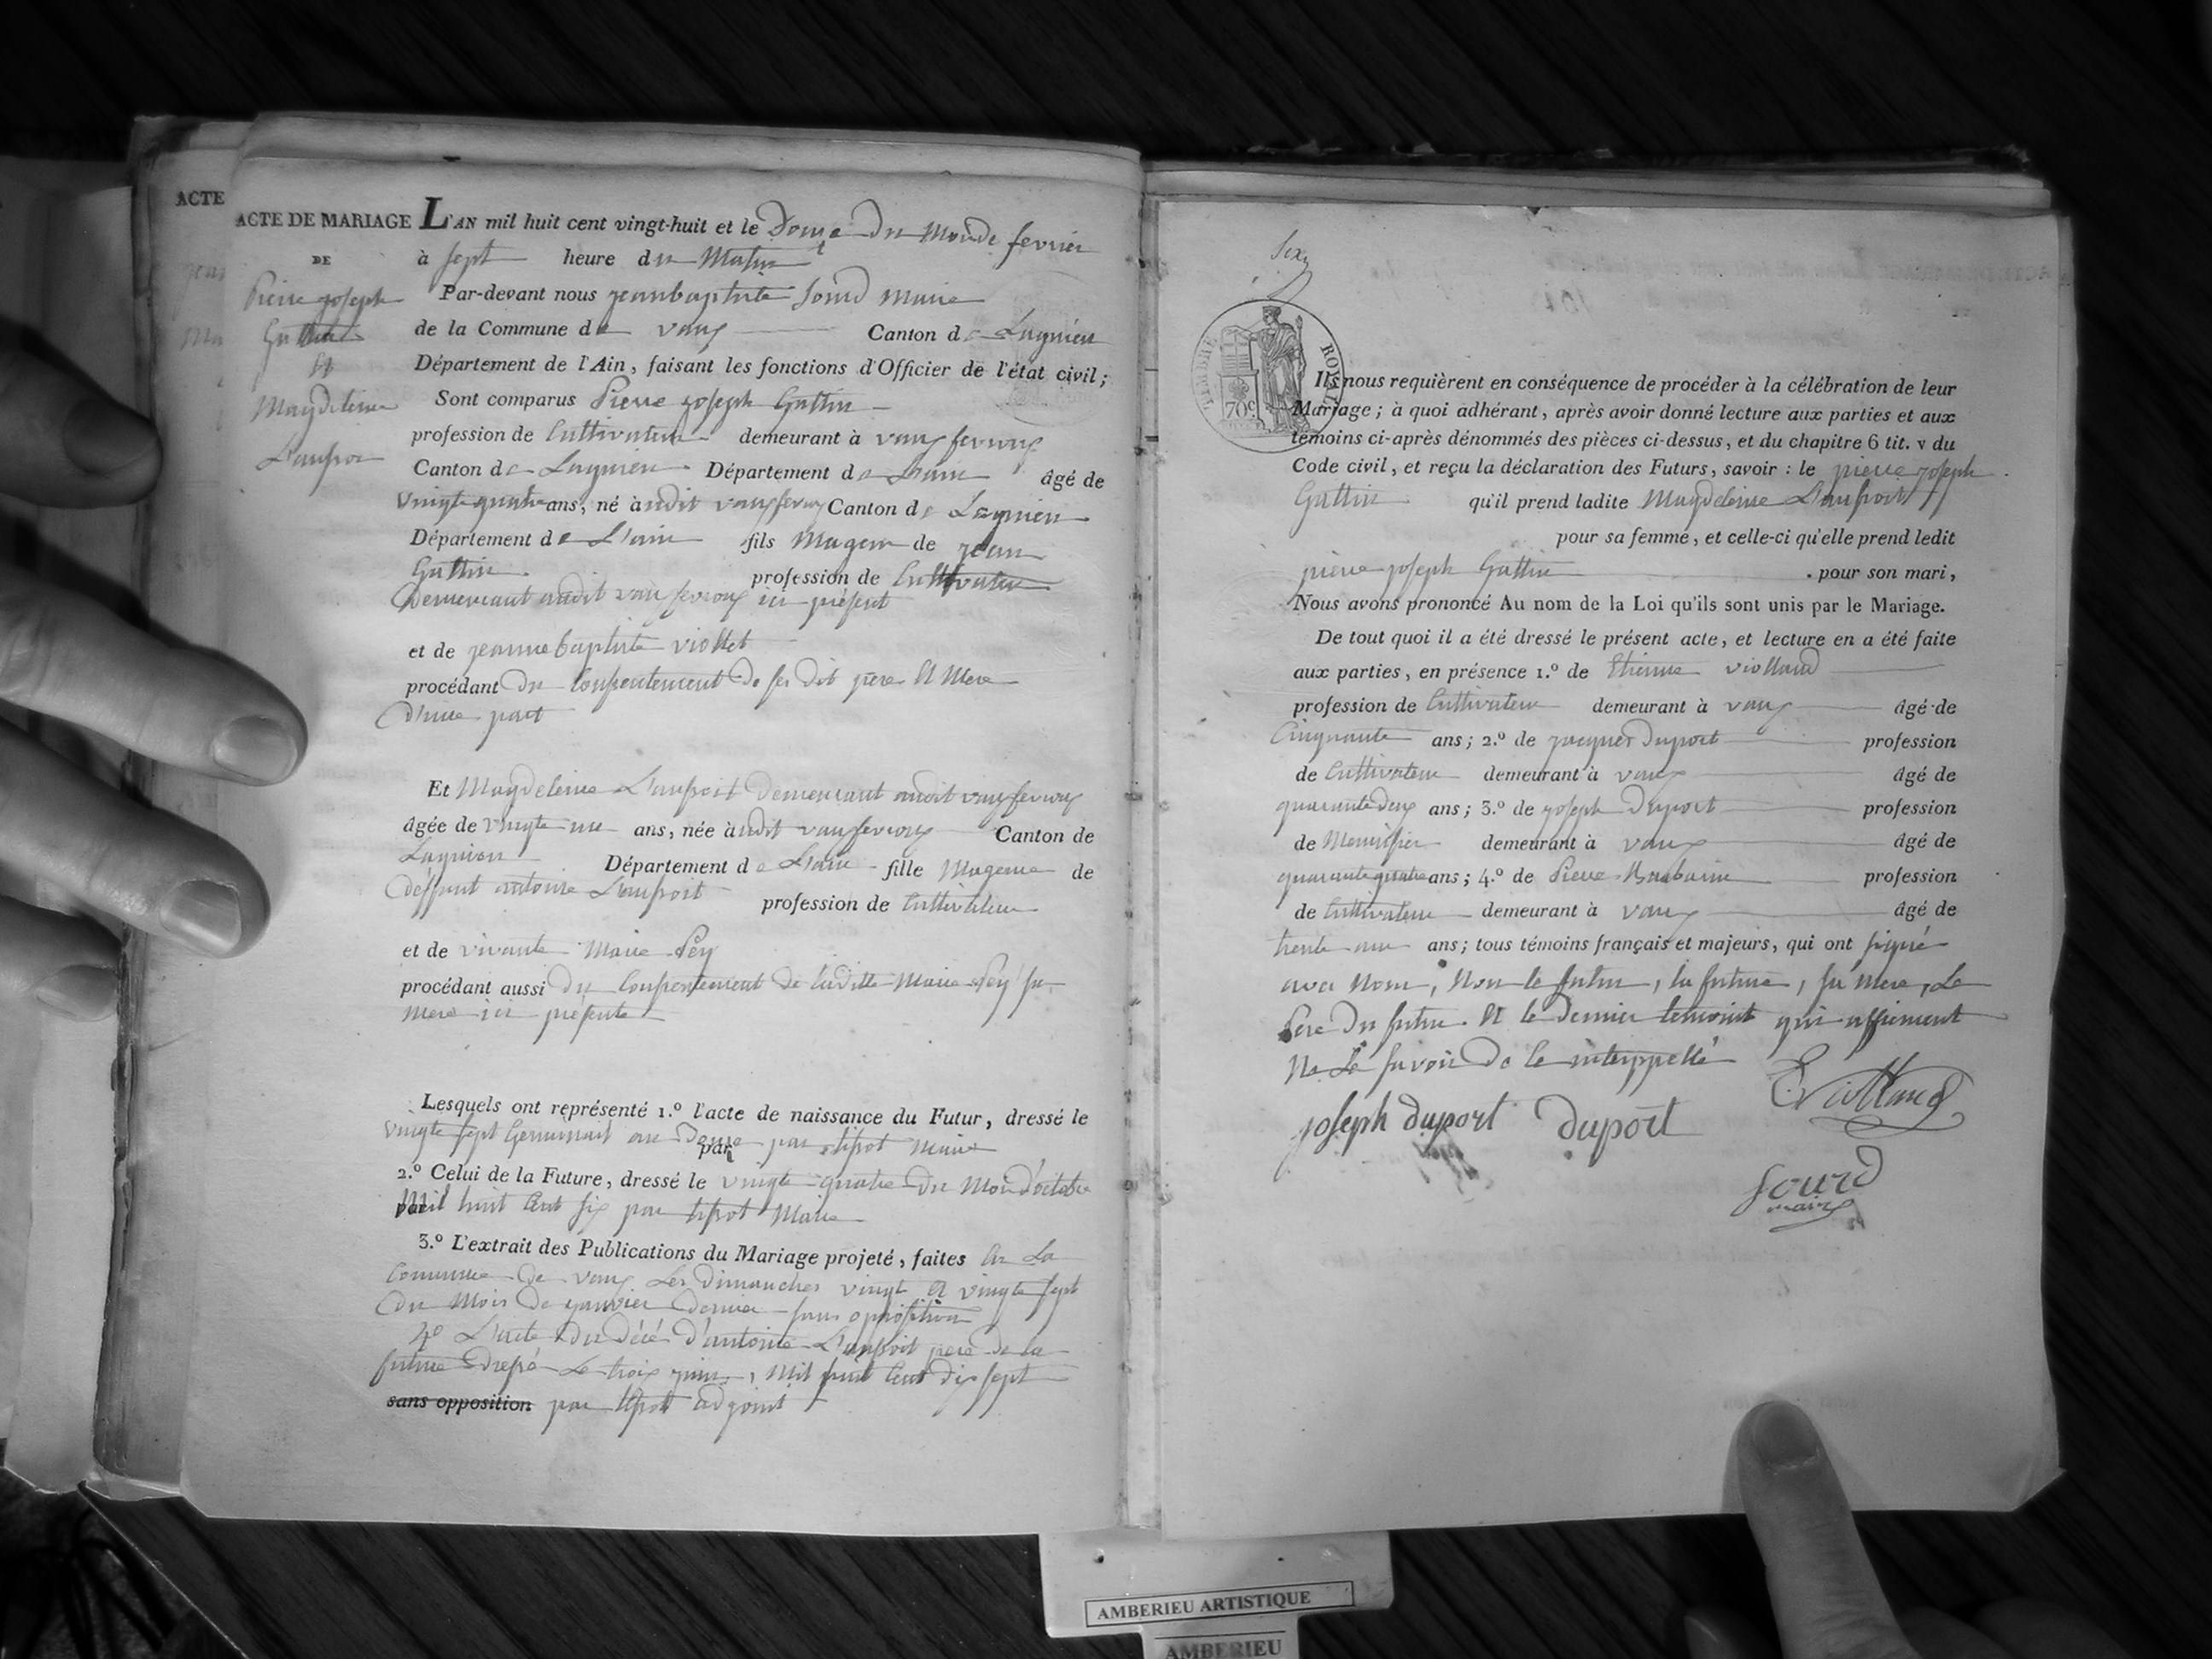 ACTE
ACTE DE MARIAGE L'AN mil huit cent vingt-huit et le Douze du Mois de fevrier
DE
à sept heure du Matin
Pierre joseph
Par-devant nous jeanbaptiste Sourd Maire
Guttin
de la Commune de vaux Canton de Lagnieu
et
Département de l'Ain, faisant les fonctions d'Officier de l'état civil;
Magdeleine
Sont comparus Pierre joseph Guttin
profession de Cultivateur demeurant à vaux fevroux
Canton de Lagnieu Département de L'ain âgé de
vingt quatre ans, né audit vaux fevroux Canton de Lagnieu
Département de L'ain fils Mageur de jean
Guttin profession de Cultivateur
Demeurant audit vaux fevroux ici présent
et de jeanne baptiste viollet
procédant du Consentement de ses dit père et Mere
d'une part
Et Magdeleine demeurant audit vaux fevroux
âgée de vingt une ans, née audit vaux fevroux Canton de
Lagnieu Département de L'ain fille Mageure de
deffunt antoine profession de Cultivateur
et de vivante Marie Pey
procédant aussi du Consentement de laditte Marie Pey sa
Mere ici présente
Lesquels ont représenté 1.º l'acte de naissance du Futur, dressé le
vingt sept Germinal an Douze par tissot Maire
par
2.º Celui de la Future, dressé le vingt quatre du Mois d'octobre
Mil huit Cent six par tissot Maire
3.º L'extrait des Publications du Mariage projeté, faites en La
Commune de vaux Les Dimanches vingt et vingt sept
du Mois de janvier dernier sans opposition
4º L'acte du décé d'antoine pere de la
future Dressé Le trois juin, Mil huit Cent dix sept
sans opposition par tissot adjoint
TIMBRE ROYAL
70c
Ils nous requièrent en conséquence de procéder à la célébration de leur
Mariage; à quoi adhérant, après avoir donné lecture aux parties et aux
témoins ci-après dénommés des pièces ci-dessus, et du chapitre 6 tit. v du
Code civil, et reçu la déclaration des Futurs, savoir: le pierre joseph
Guttin qu'il prend ladite Magdeleine
pour sa femme, et celle-ci qu'elle prend ledit
pierre joseph Guttin pour son mari,
Nous avons prononcé Au nom de la Loi qu'ils sont unis par le Mariage.
De tout quoi il a été dressé le présent acte, et lecture en a été faite
aux parties, en présence 1.º de Etienne viollaud
profession de Cultivateur demeurant à vaux âgé de
Cinquante ans; 2.º de jacques Duport profession
de Cultivateur demeurant à vaux âgé de
quarante deux ans; 3.º de joseph Duport profession
de Menuisier demeurant à vaux âgé de
quarante quatre ans; 4.º de Pierre Barbarin profession
de Cultivateur demeurant à vaux âgé de
trente ans; tous témoins français et majeurs, qui ont signé
avec Nous, Non le futur, la future, sa Mere, Le
Pere du futur et le dernier temoint qui affirment
Ne Le savoir de ce interppellé
joseph duport duport E viollaud
Sourd
maire
AMBERIEU ARTISTIQUE
AMBERIEU